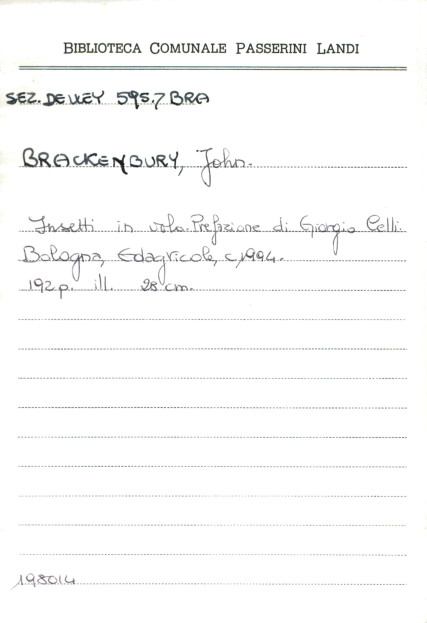 BIBLIOTECA COMUNALE PASSERINI LANDI
SEZ. DEWEY 595.7 BRA
BRACKENBURY, John.
Insetti in volo. Prefazione di Giorgio Celli.
Bologna, Edagricole, c1994.
192 p. ill. 28 cm.
198014